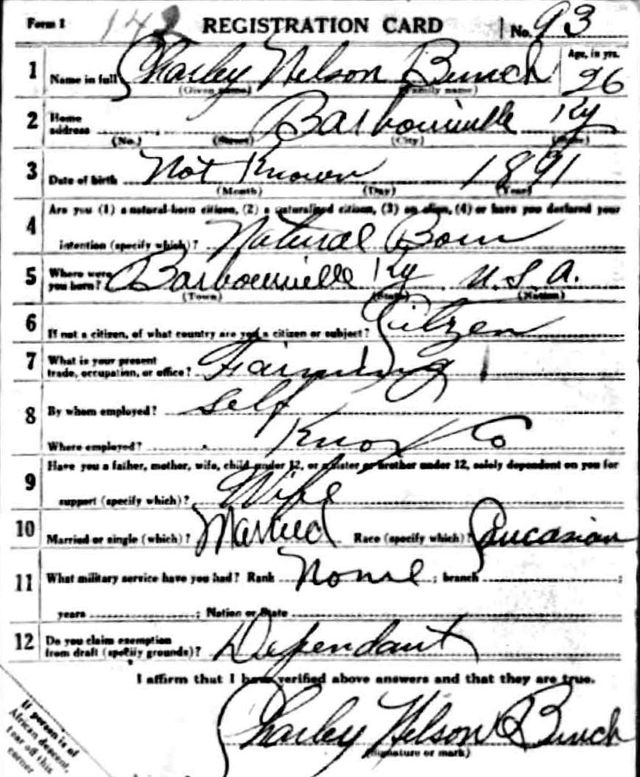 Form 1 142 REGISTRATION CARD No. 93
1 Name in full Charley Nelson Bunch Age, in yrs. 26
(Given name) (Family name)
2 Home address Barbourville Ky
(No.) (Street) (City) (State)
3 Date of birth Not Known 1891
(Month) (Day) (Year)
4 Are you (1) a natural-born citizen, (2) a naturalized citizen, (3) an alien, (4) or have you declared your
intention (specify which)? Natural Born
5 Where were you born? Barbourville Ky U.S.A.
(Town) (State) (Nation)
6 If not a citizen, of what country are you a citizen or subject? Citizen
7 What is your present trade, occupation, or office? Farming
8 By whom employed? Self
Where employed? Knox Co
9 Have you a father, mother, wife, child under 12, or a sister or brother under 12, solely dependent on you for
support (specify which)? Wife
10 Married or single (which)? Married Race (specify which)? Caucasian
11 What military service have you had? Rank None ; branch
years ; Nation or State
12 Do you claim exemption from draft (specify grounds)? Dependant
I affirm that I have verified above answers and that they are true.
Charley Nelson Bunch
(Signature or mark)
If person is of
African descent,
tear off this
corner